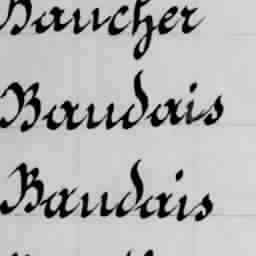 Baucher
Baudais
Baudais